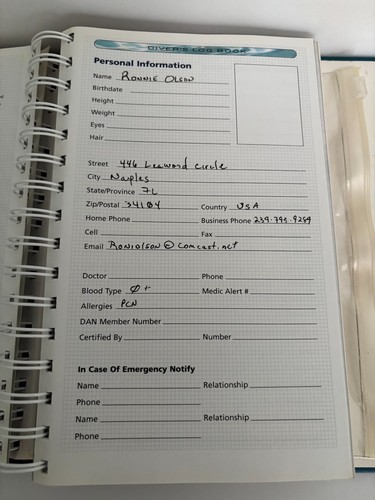 DIVER'S LOG BOOK
Personal Information
Name Ronnie Olson
Birthdate
Height
Weight
Eyes
Hair
Street 446 Leawood Circle
City Naples
State/Province FL
Zip/Postal 34104 Country USA
Home Phone Business Phone 239.793.9259
Cell Fax
Email Roniolson@comcast.net
Doctor Phone
Blood Type O+ Medic Alert #
Allergies PCN
DAN Member Number
Certified By Number
In Case Of Emergency Notify
Name Relationship
Phone
Name Relationship
Phone